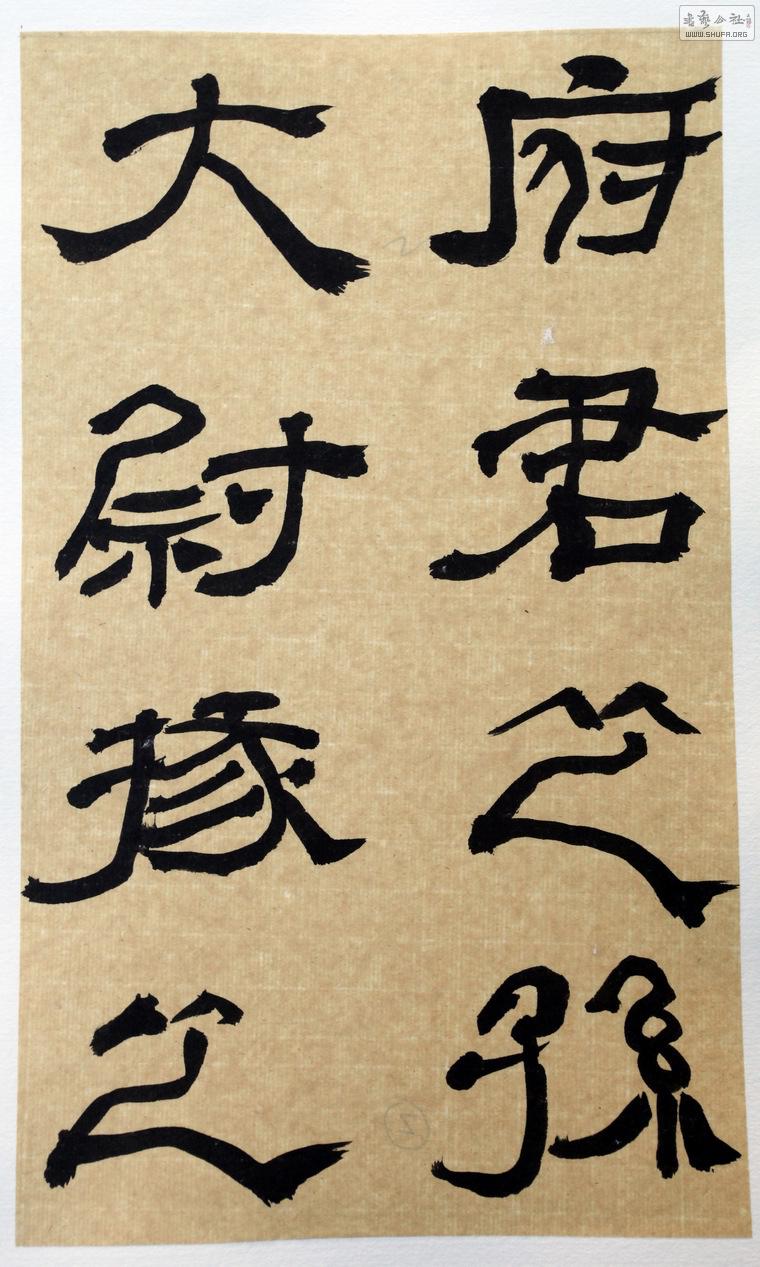 府君之孫
大尉掾之
②
书艺公社
WWW.SHUFA.ORG